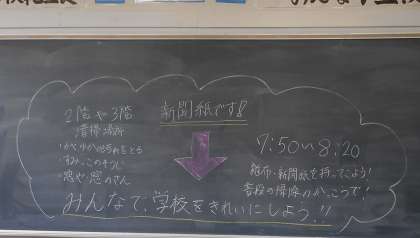 2階や3階
清掃場所
・かべのよごれをとる
・すみっこのそうじ
・窓や窓のさん
新聞紙です!!
7:50~8:20
雑巾・新聞紙を持ってこよう!
普段の掃除のかっこうで!
みんなで、学校をきれいにしよう!!